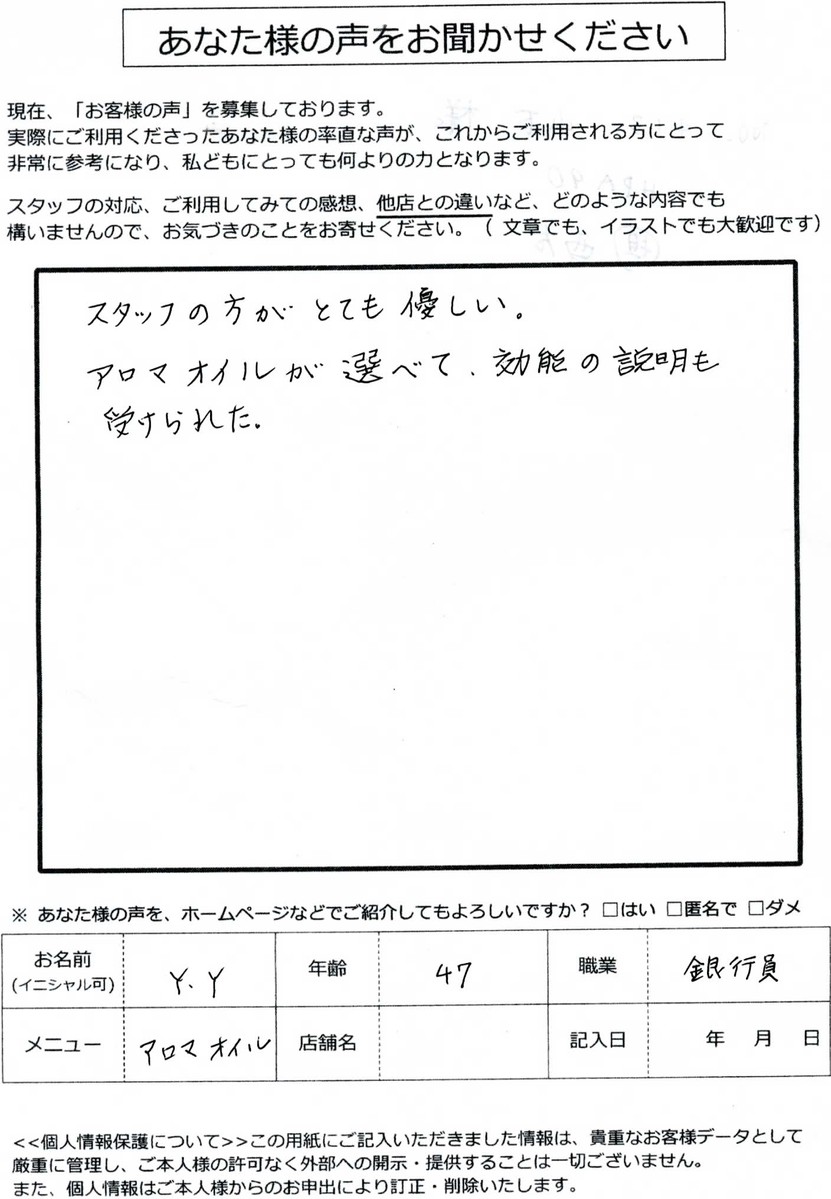 あなた様の声をお聞かせください
現在、「お客様の声」を募集しております。
実際にご利用くださったあなた様の率直な声が、これからご利用される方にとって
非常に参考になり、私どもにとっても何よりの力となります。
スタッフの対応、ご利用してみての感想、他店との違いなど、どのような内容でも
構いませんので、お気づきのことをお寄せください。（ 文章でも、イラストでも大歓迎です）
スタッフの方がとても優しい。
アロマオイルが選べて、効能の説明も
受けられた。
※ あなた様の声を、ホームページなどでご紹介してもよろしいですか？ □はい □匿名で □ダメ
お名前 (イニシャル可) Y.Y 年齢 47 職業 銀行員
メニュー アロマオイル 店舗名 記入日 年 月 日
<<個人情報保護について>>この用紙にご記入いただきました情報は、貴重なお客様データとして
厳重に管理し、ご本人様の許可なく外部への開示・提供することは一切ございません。
また、個人情報はご本人様からのお申出により訂正・削除いたします。